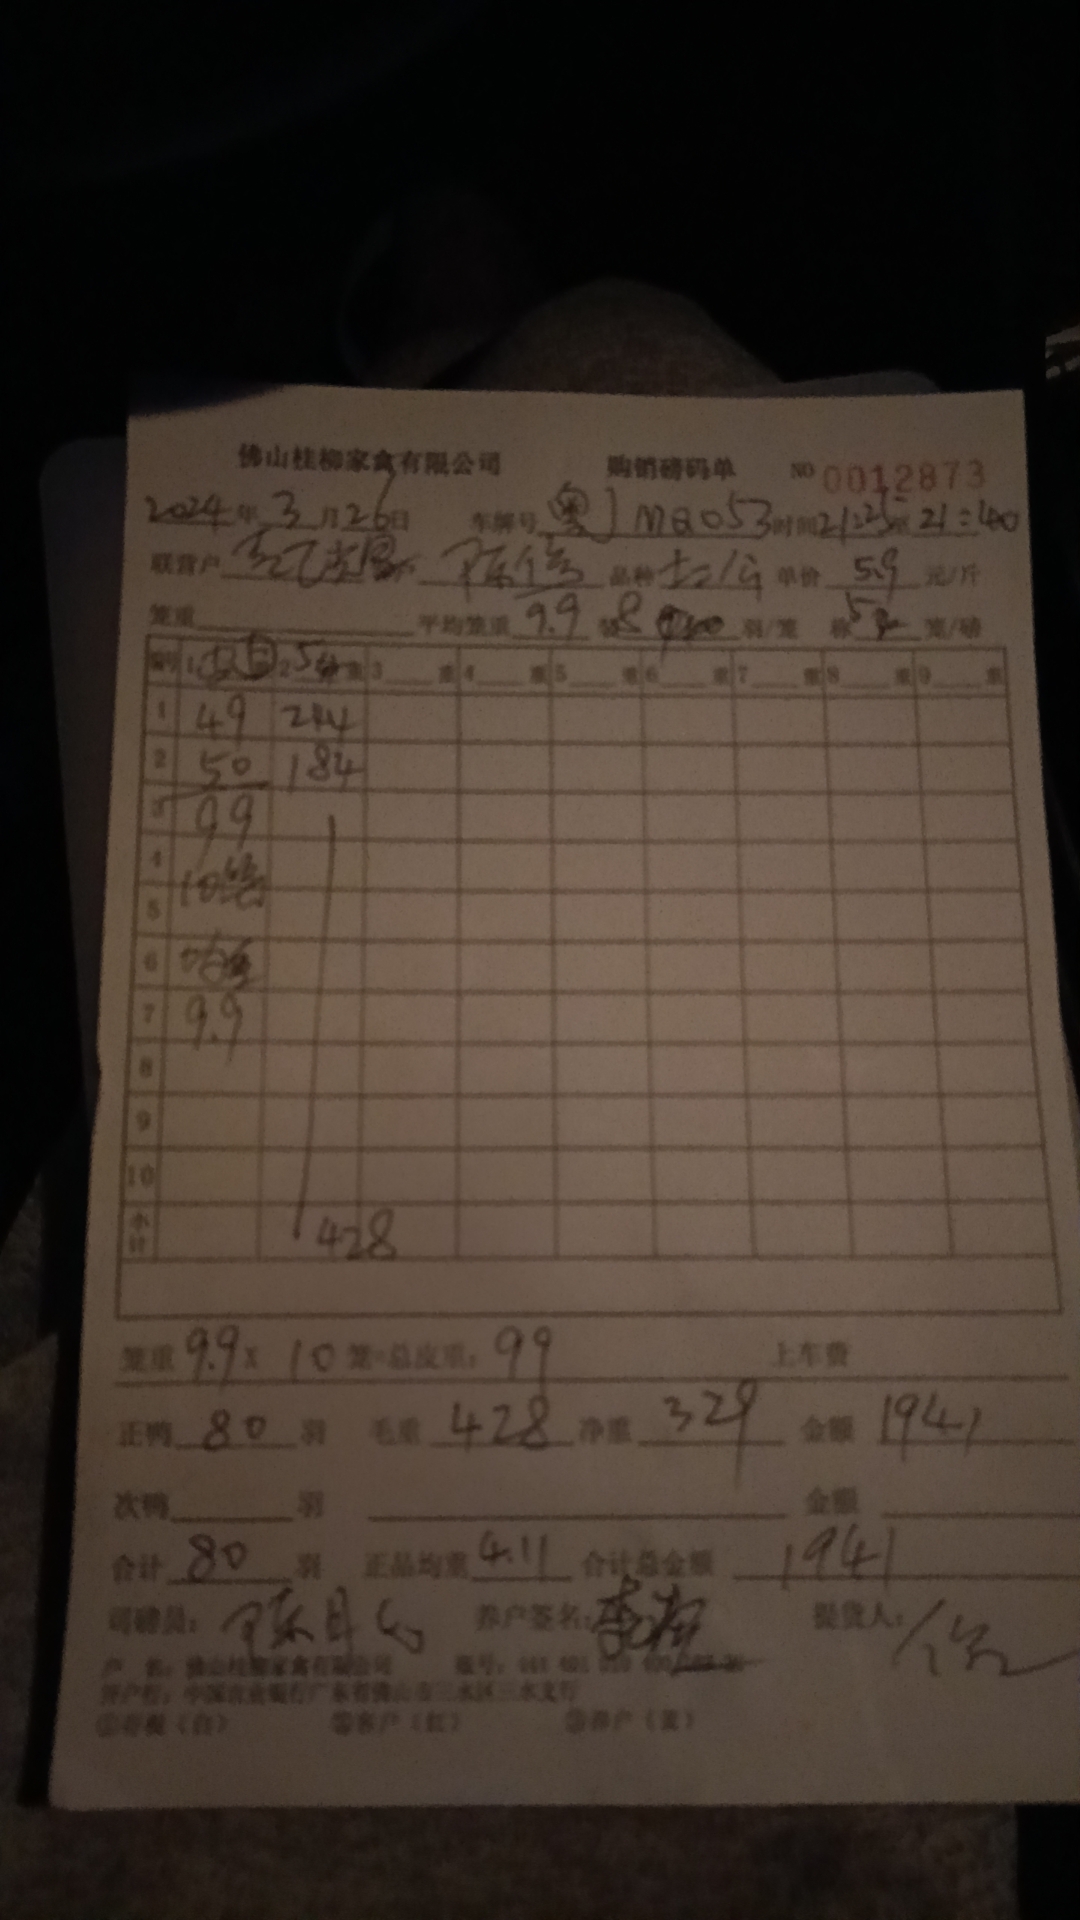 佛山桂柳家禽有限公司 购销磅码单 NO 0012873
2024年3月26日 车牌号 粤J MQ053 时间21:25至21:40
联营户 品种 单价 5.9 元/斤
笼重 平均笼重 9.9 装8 羽/笼 称5 笼/磅
1 2 5 重 3 重 4 重 5 重 6 重 7 重 8 重 9 重
1 49 244
2 50 184
3 99
4
5
6
7 9.9
8
9
10
小计 428
笼重 9.9 X 10 笼=总皮重: 99 上车费
正鸭 80 羽 毛重 428 净重 329 金额 1941
次鸭 羽 金额
合计 80 羽 正品均重 4.11 合计总金额 1941
司磅员: 养户签名: 提货人:
户 名: 佛山桂柳家禽有限公司 账号:
开户行: 中国农业银行广东省佛山市三水区三水支行
①存根(白) ②客户(红) ③养户(黄)